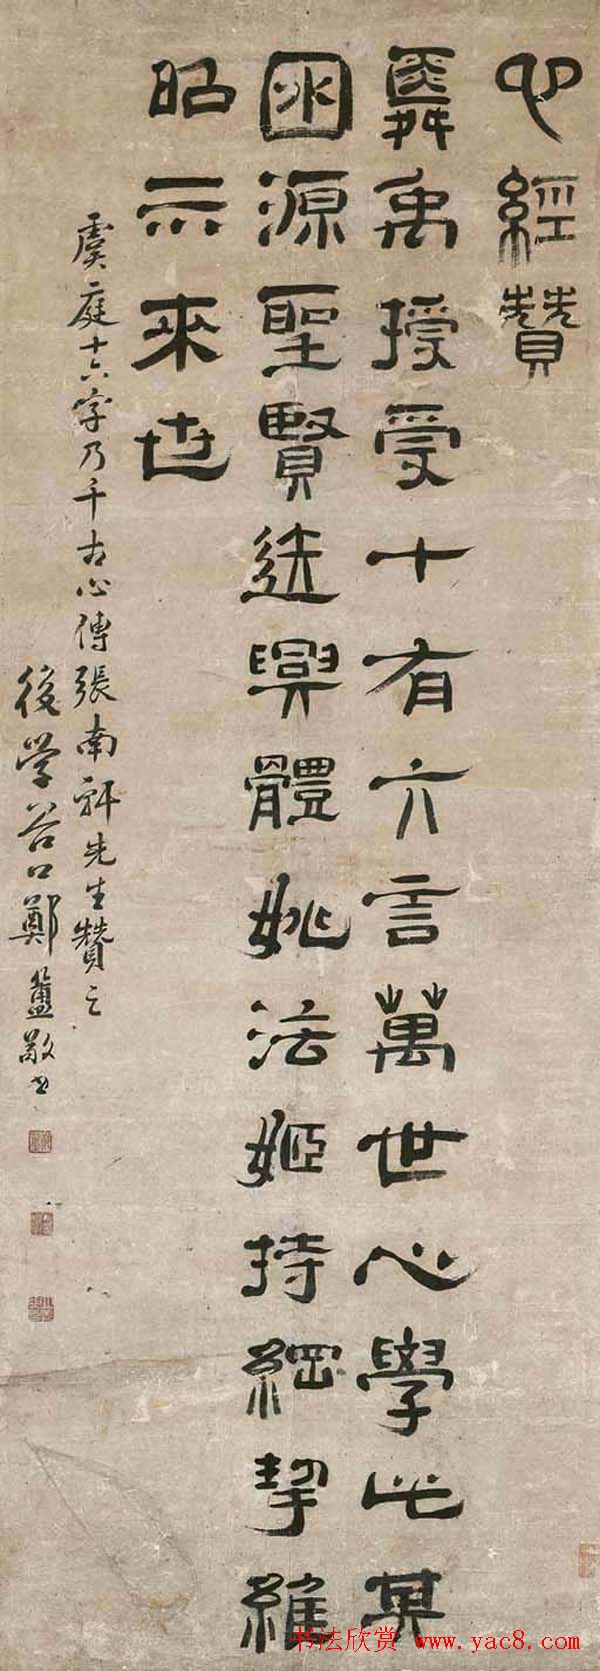 心經贊
舜禹授受十有六言萬世心學此其
囦源聖賢迭興體姚法姬持綱挈維
昭示來世
虞庭十六字乃千古心傳張南軒先生贊之
後学谷口鄭簠敬書
书法欣赏 www.yac8.com